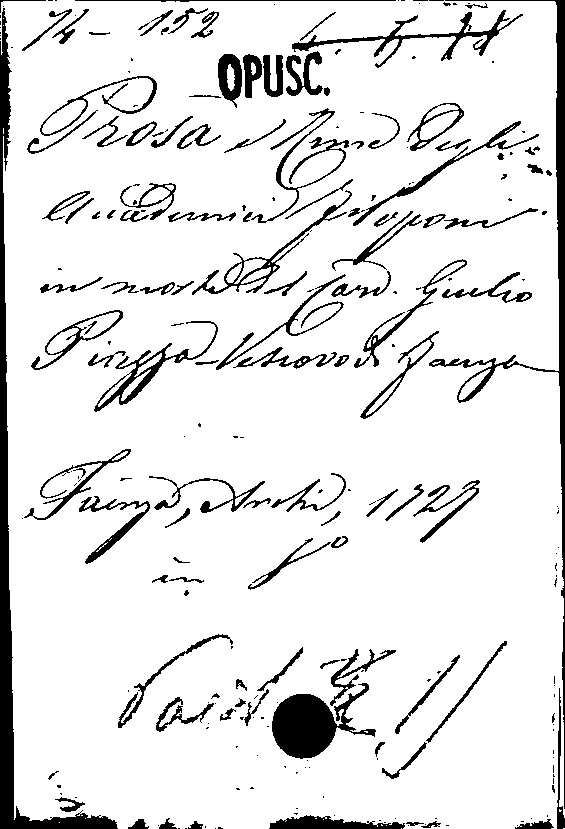 74 - 152
4. 5. 78
OPUSC.
Prosa e Rime degli
Academici Filoponi
in morte del Card. Giulio
Piazza Vescovo di Faenza
Faenza, Archi, 1727
in 8º